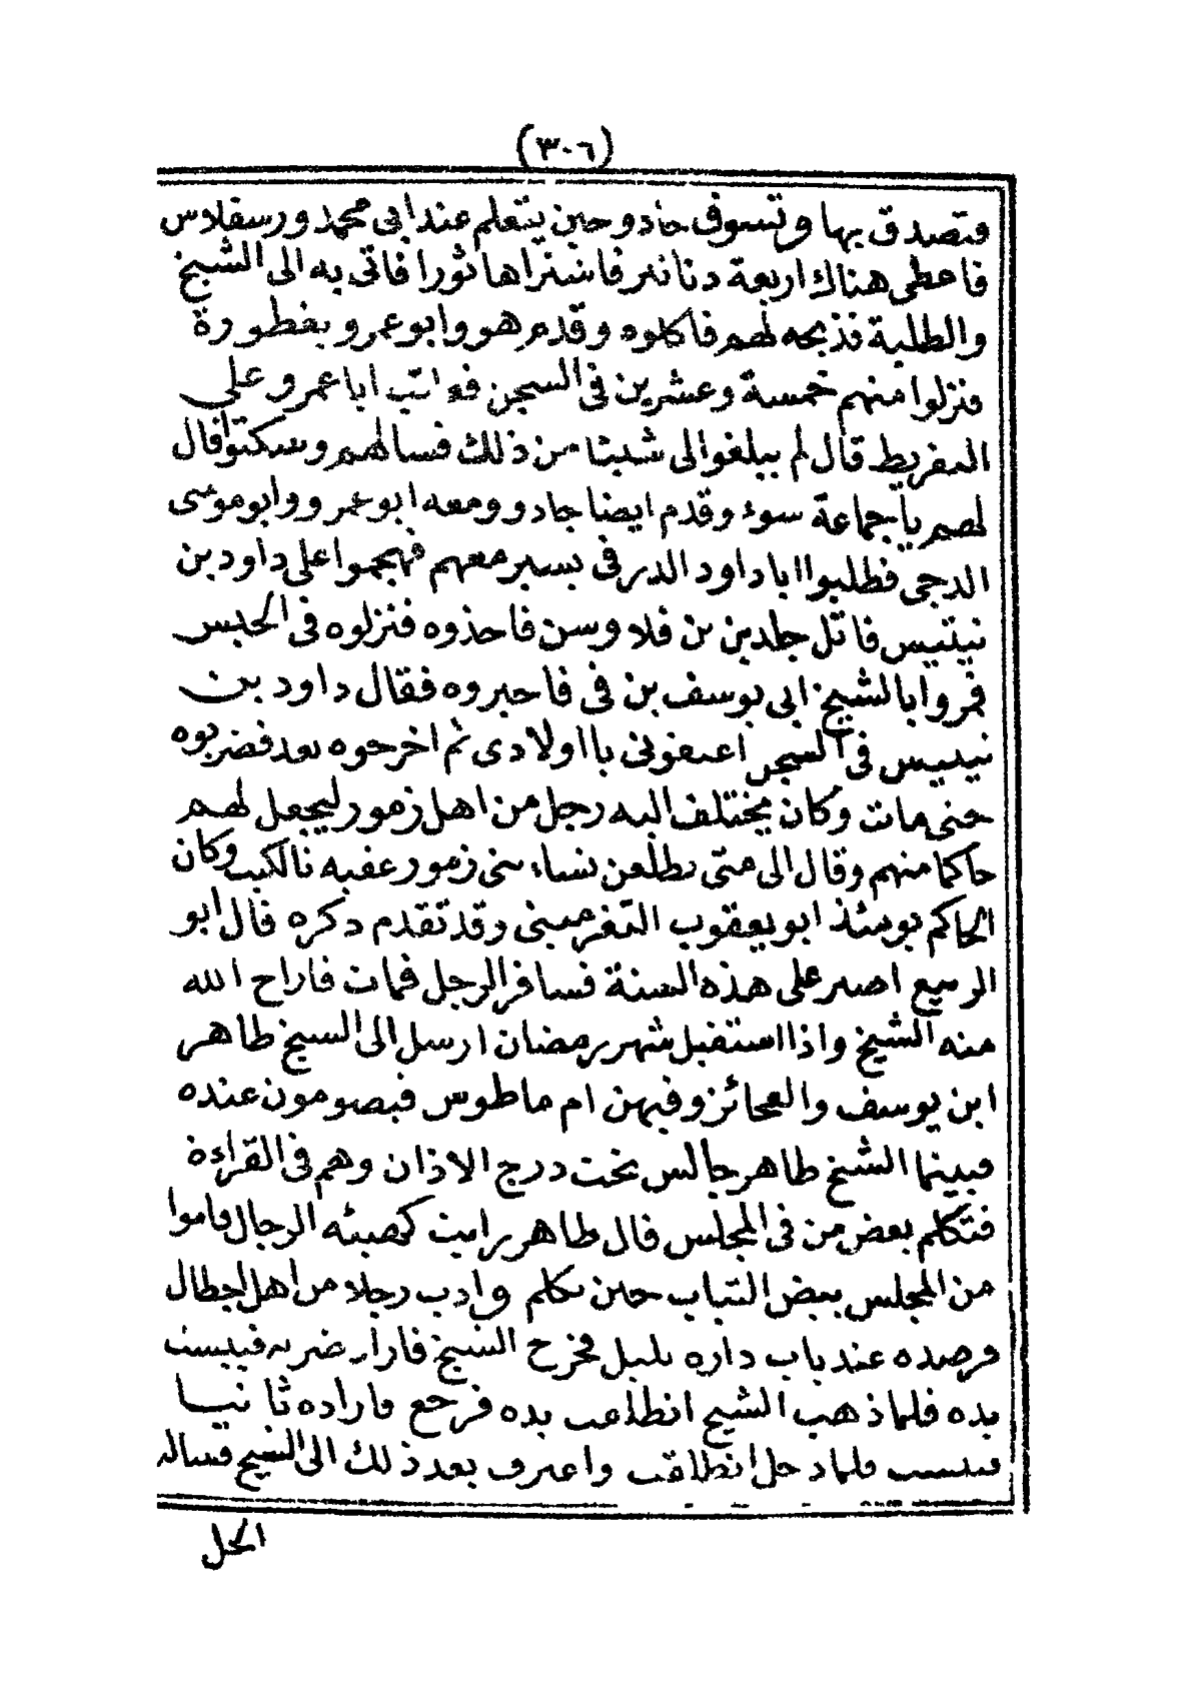 (٣٠٦)
فتصدق بها وتسوق جادو حين يتعلم عند ابى محمد ورسفلاس
فاعطى هناك اربعة دنانير فاشتراها ثورا فاتى به الى الشيخ
والطلبة فذبحه لهم فاكلوه وقدم هو وابو عمرو بغطورة
فنزلوا منهم خمسة وعشرين فى السجن فعاتب ابا عمرو على
التفريط قال لم يبلغوا الى شيئا من ذلك فسالهم وسكتوا فقال
لهم يا جماعة سوء وقدم ايضا جادو ومعه ابو عمرو وابو موسى
الدجى فطلبوا ابا داود الدرفى يسير معهم فهجموا على داود بن
نيتيس قاتل جلدين بن فلاوسن فاخذوه فنزلوه فى الحبس
فمروا بالشيخ ابى يوسف بن فى فاخبروه فقال داود بن
نيتيس فى السجن اعيفونى يا اولادى ثم اخرجوه بعد فضربوه
حتى مات وكان يختلف اليه رجل من اهل زمور ليجعل لهم
حاكما منهم وقال الى متى يطلعن نساء بنى زمور عقبه تالكيب وكان
الحاكم يومئذ ابو يعقوب التغرمينى وقد تقدم ذكره قال ابو
الربيع اصبر على هذه السنة فسافر الرجل فمات فاراح الله
منه الشيخ واذا استقبل شهر رمضان ارسل الى الشيخ طاهر
ابن يوسف والعجائز وفيهن ام ماطوس فيصومون عنده
فبينما الشيخ طاهر جالس تحت درج الاذان وهم فى القراءة
فتكلم بعض من فى المجلس قال طاهر رايت كهيئه الرجال قاموا
من المجلس ببعض الثياب حين تكلم وادب رجلا من اهل اجطال
فرصده عند باب داره بليل فخرج الشيخ فاراد ضربه فيبست
يده فلما ذهب الشيخ انطلقت يده فرجع فاراده ثانيا
فيبست فلما دخل انطلقت واعترف بعد ذلك الى الشيخ فساله
الحل